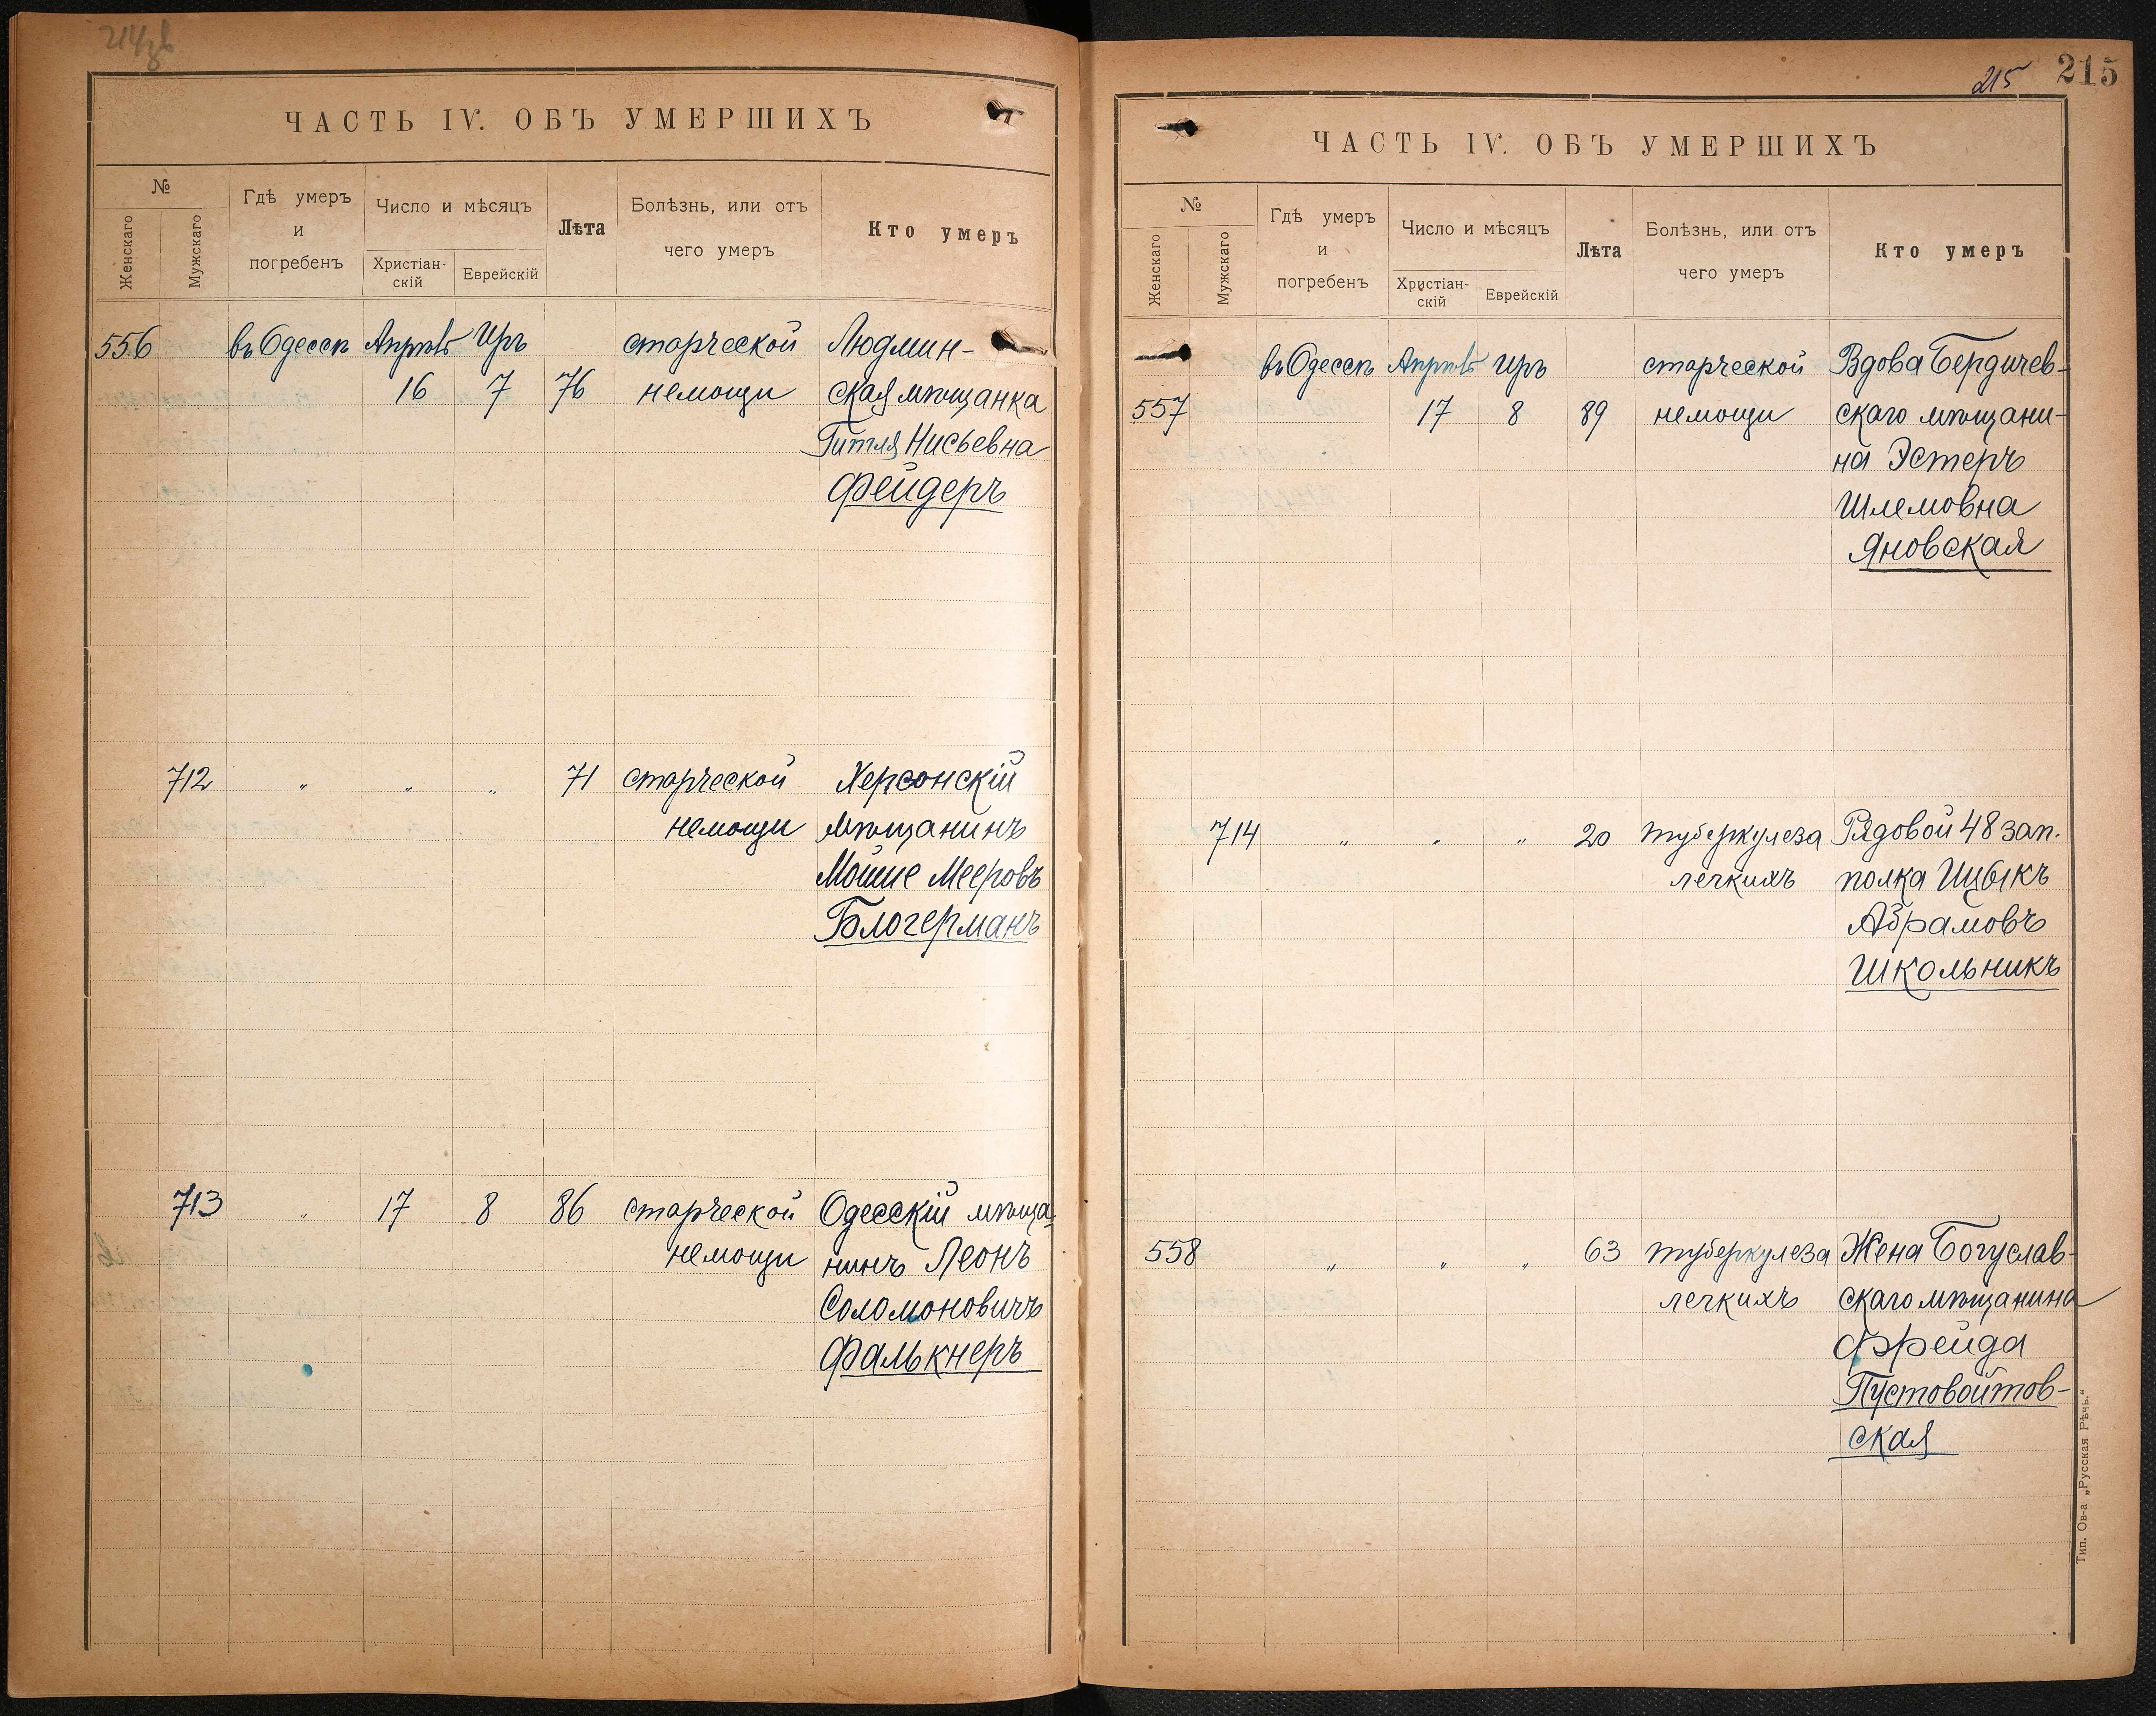 ЧАСТЬ IV. ОБЪ УМЕРШИХЪ
№
Женскаго
Мужскаго
Гдѣ умеръ
и
погребенъ
Число и мѣсяцъ
Христіан-
скій
Еврейскій
Лѣта
Болѣзнь, или отъ
чего умеръ
Кто умеръ
556 въ Одессѣ Апрѣль Иръ старческой Людмин-
16 7 76 немощи ская мѣщанка
Гитля Нисьевна
Фейдеръ
712 " " " 71 старческой Херсонскій
немощи мѣщанинъ
Мойше Мееровъ
Блогерманъ
713 " 17 8 86 старческой Одесскій мѣща-
немощи нинъ Леонъ
Соломоновичъ
Фалькнеръ
215 215
ЧАСТЬ IV. ОБЪ УМЕРШИХЪ
№
Женскаго
Мужскаго
Гдѣ умеръ
и
погребенъ
Число и мѣсяцъ
Христіан-
скій
Еврейскій
Лѣта
Болѣзнь, или отъ
чего умеръ
Кто умеръ
въ Одессѣ Апрѣль Иръ старческой Вдова Бердичев-
557 17 8 89 немощи скаго мѣщани-
на Эстеръ
Шлемовна
Яновская
714 " " " 20 туберкулеза Рядовой 48 зап.
легкихъ полка Ицыкъ
Абрамовъ
Школьникъ
558 " " " 63 туберкулеза Жена Богуслав-
легкихъ скаго мѣщанина
Фрейда
Пустовойтов-
ская
Тип. Ов-а „Русская Рѣчь."